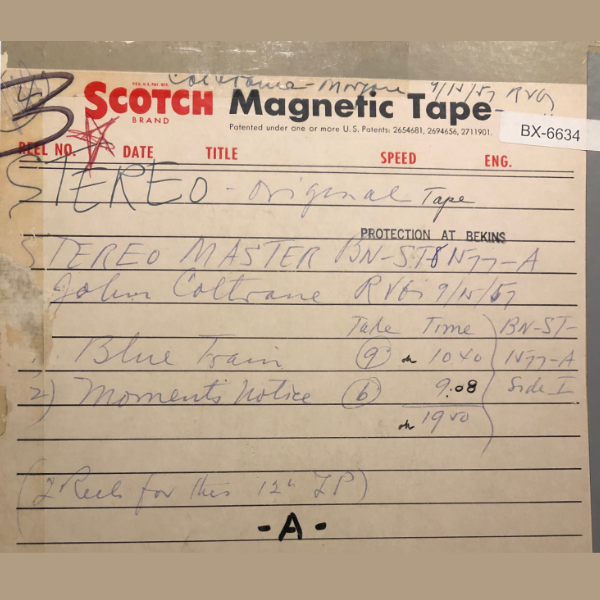 Coltrane - Morgan 9/15/57 RVG
3
REG. U.S. PAT. OFF.
SCOTCH Magnetic Tape
BRAND
Patented under one or more U.S. Patents: 2654681, 2694656, 2711901.
BX-6634
REEL NO. DATE TITLE SPEED ENG.
STEREO - original Tape
PROTECTION AT BEKINS
STEREO MASTER BN-ST 1577-A
John Coltrane RVG 9/15/57
Take Time BN-ST-
1. Blue Train 9 1040 1577-A
2) Moments Notice 6 9.08 Side I
1950
(2 Reels for this 12" LP)
- A -